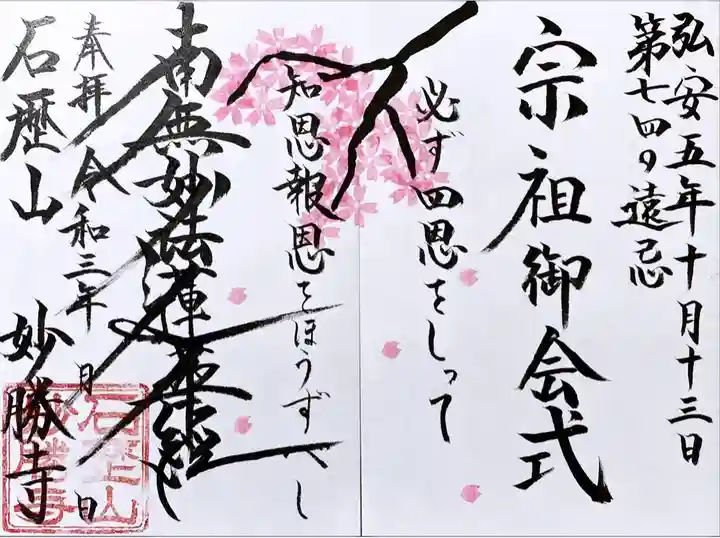 弘安五年十月十三日
第七四〇遠忌
宗祖御会式
必ず四恩をしって
知恩報恩をほうずべし
南無妙法蓮華経
奉拝 令和三年 月 日
石歴山 妙勝寺
石歴山
妙勝寺